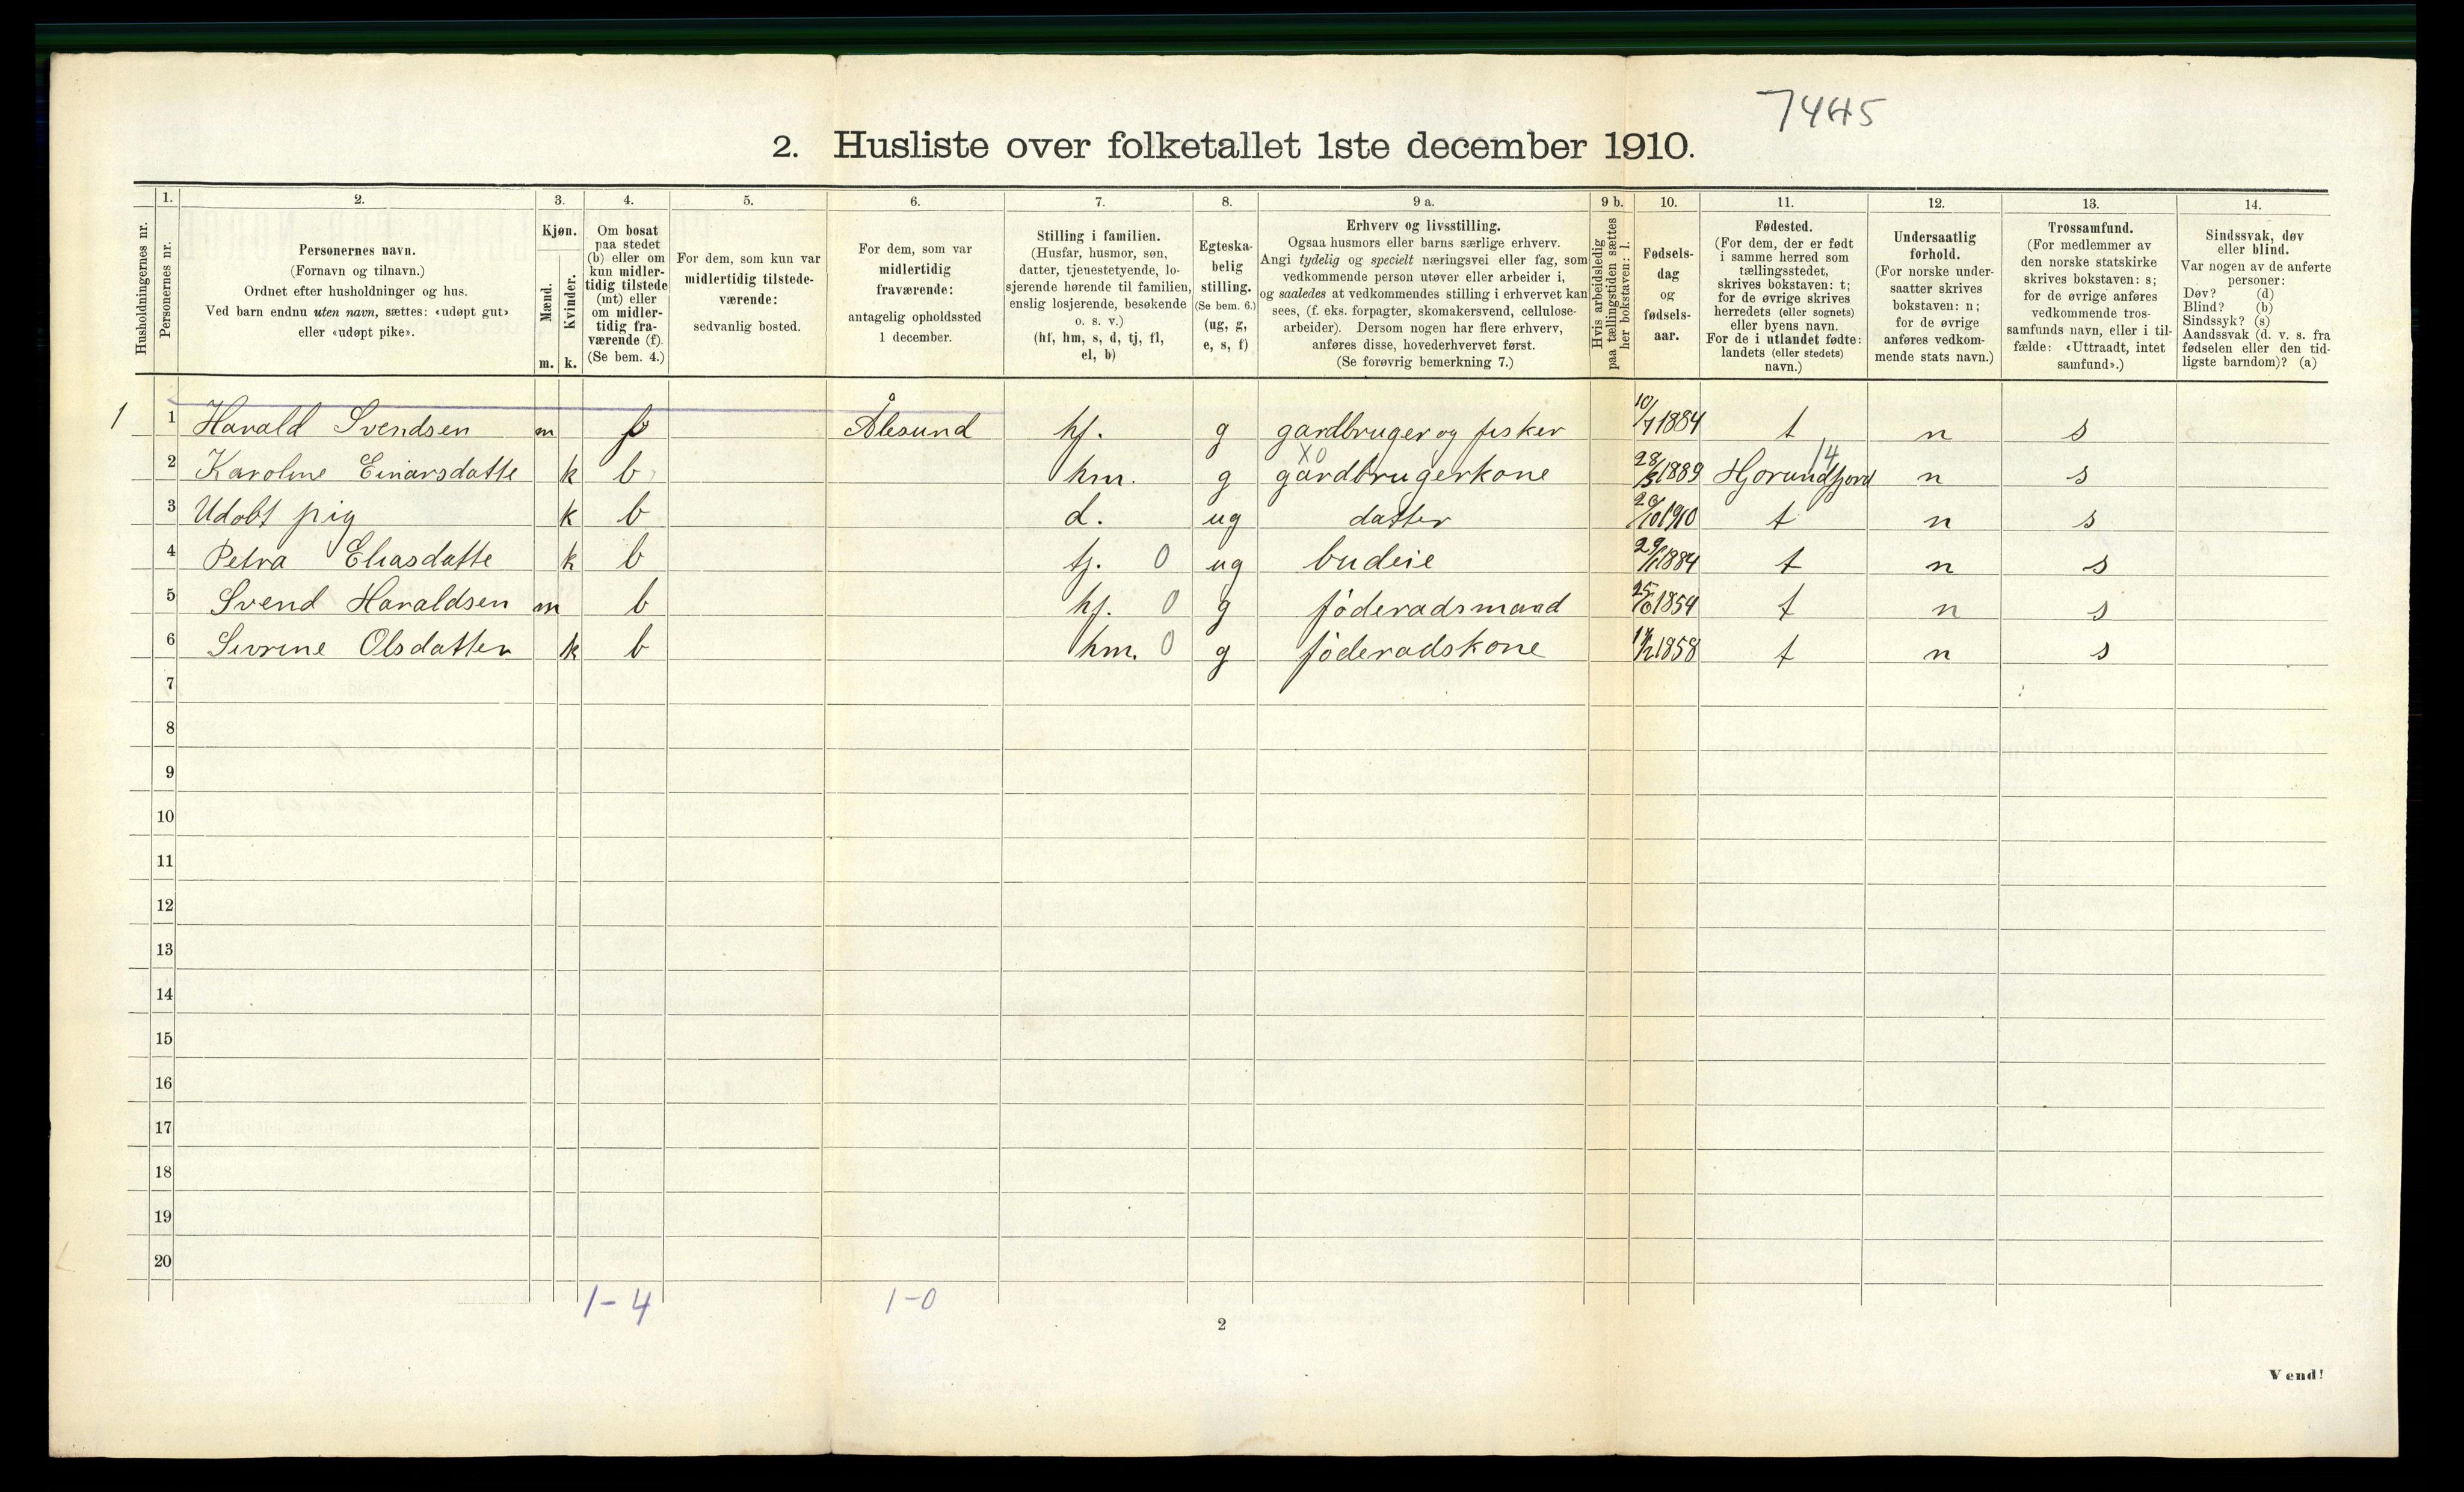 7445
2. Husliste over folketallet 1ste december 1910.
Husholdningernes nr.
1.
Personernes nr.
2.
Personernes navn.
(Fornavn og tilnavn.)
Ordnet efter husholdninger og hus.
Ved barn endnu uten navn, sættes: «udøpt gut»
eller «udøpt pike».
3.
Kjøn.
Mænd.
Kvinder.
m. k.
4.
Om bosat
paa stedet
(b) eller om
kun midler-
tidig tilstede
(mt) eller
om midler-
tidig fra-
værende (f).
(Se bem. 4.)
5.
For dem, som kun var
midlertidig tilstede-
værende:
sedvanlig bosted.
6.
For dem, som var
midlertidig
fraværende:
antagelig opholdssted
1 december.
7.
Stilling i familien.
(Husfar, husmor, søn,
datter, tjenestetyende, lo-
sjerende hørende til familien,
enslig losjerende, besøkende
o. s. v.)
(hf, hm, s, d, tj, fl,
el, b)
8.
Egteska-
belig
stilling.
(Se bem. 6.)
(ug, g,
e, s, f)
9 a.
Erhverv og livsstilling.
Ogsaa husmors eller barns særlige erhverv.
Angi tydelig og specielt næringsvei eller fag, som
vedkommende person utøver eller arbeider i,
og saaledes at vedkommendes stilling i erhvervet kan
sees, (f. eks. forpagter, skomakersvend, cellulose-
arbeider). Dersom nogen har flere erhverv,
anføres disse, hovederhvervet først.
(Se forøvrig bemerkning 7.)
9 b.
Hvis arbeidsledig
paa tællingstiden sættes
her bokstaven: l.
10.
Fødsels-
dag
og
fødsels-
aar.
11.
Fødested.
(For dem, der er født
i samme herred som
tællingsstedet,
skrives bokstaven: t;
for de øvrige skrives
herredets (eller sognets)
eller byens navn.
For de i utlandet fødte:
landets (eller stedets)
navn.)
12.
Undersaatlig
forhold.
(For norske under-
saatter skrives
bokstaven: n;
for de øvrige
anføres vedkom-
mende stats navn.)
13.
Trossamfund.
(For medlemmer av
den norske statskirke
skrives bokstaven: s;
for de øvrige anføres
vedkommende tros-
samfunds navn, eller i til-
fælde: «Uttraadt, intet
samfund».)
14.
Sindssvak, døv
eller blind.
Var nogen av de anførte
personer:
Døv? (d)
Blind? (b)
Sindssyk? (s)
Aandssvak (d. v. s. fra
fødselen eller den tid-
ligste barndom)? (a)
1 1 Harald Svendsen m f Ålesund hf. g gardbruger og fisker 10/7 1884 t n s
2 Karoline Einarsdatte k b hm. g gardbrugerkone X0 28/3 1889 Hjorundfjord 14 n s
3 Udobt pig k b d. ug datter 20/10 1910 t n s
4 Petra Eliasdatte k b tj. 0 ug budeie 29/11 1884 t n s
5 Svend Haraldsen m b hf. 0 g föderadsmand 25/10 1854 t n s
6 Sivrine Olsdatter k b hm. 0 g föderadskone 1858 t n s
7
8
9
10
11
12
13
14
15
16
17
18
19
20
1-4 1-0
2
Vend!